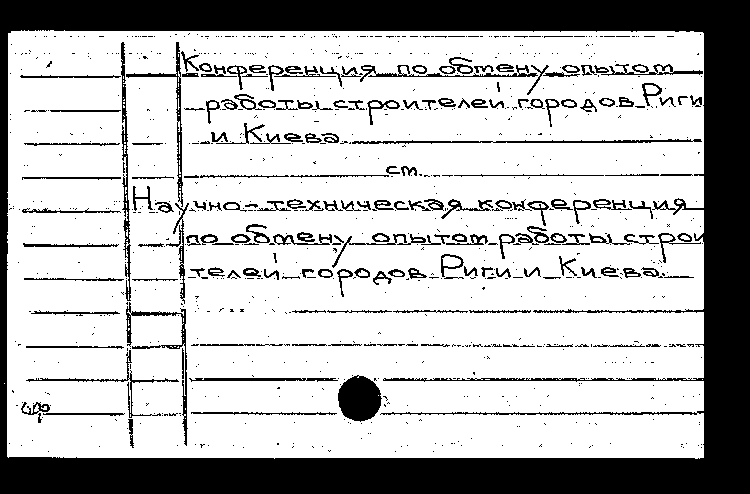 Конференция по обмену опытом
работы строителей городов Риги
и Киева
ст.
Научно-техническая конференция
по обмену опытом работы строи
телей городов Риги и Киева.